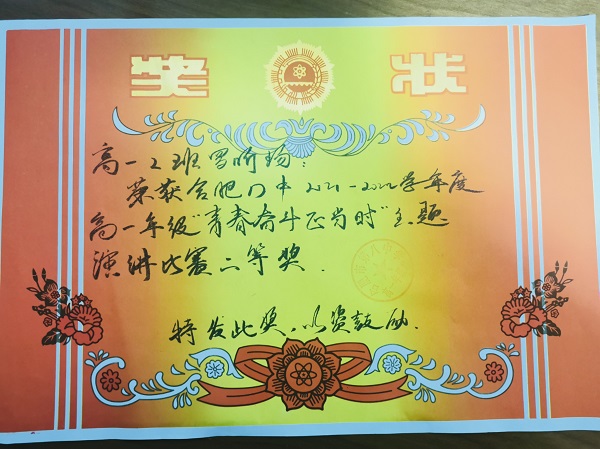 奖 状
高一2班罗昕杨:
荣获合肥八中2021-2022学年度
高一年级"青春奋斗正当时"主题
演讲比赛二等奖.
特发此奖,以资鼓励.